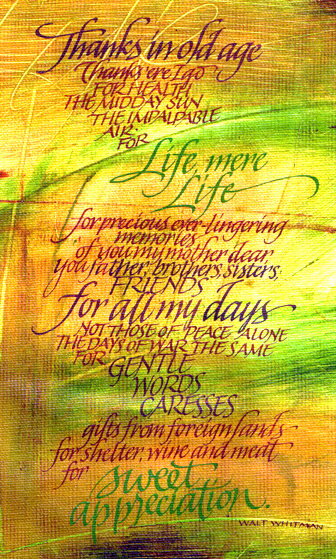 Thanks in old age
Thanks ere I go
FOR HEALTH,
THE MIDDAY SUN
THE IMPALPABLE
AIR·
FOR
Life, mere
Life
for precious ever-lingering
memories
of you my mother dear
you father, brothers, sisters,
FRIENDS
for all my days
NOT THOSE OF PEACE ALONE
THE DAYS OF WAR THE SAME
FOR
GENTLE
WORDS
CARESSES
gifts from foreign lands
for shelter wine and meat
for sweet
appreciation.
WALT WHITMAN